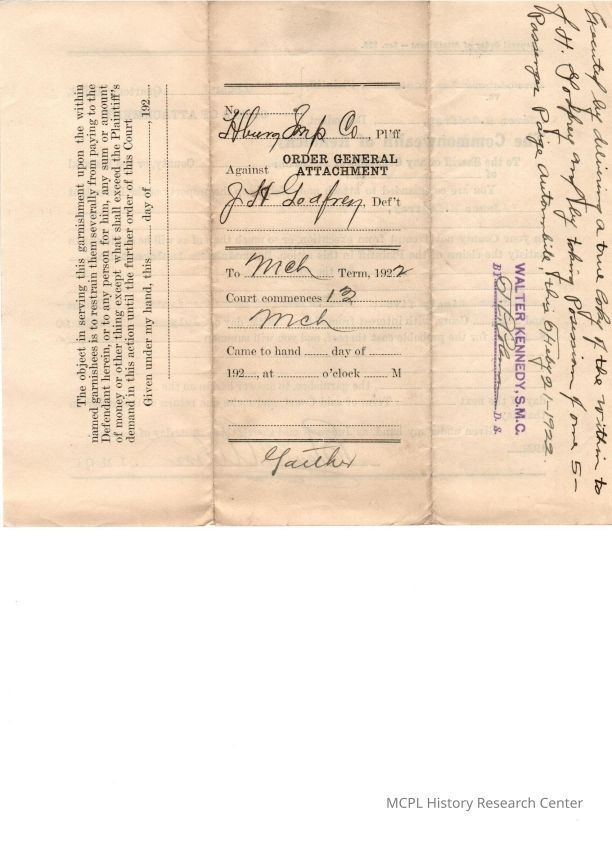 The object in serving this garnishment upon the within
named garnishees is to restrain them severally from paying to the
Defendant herein, or to any person for him, any sum or amount
of money or other thing except what shall exceed the Plaintiff's
demand in this action until the further order of this Court.
Given under my hand, this ...... day of ............, 192....
No.
Hburg Imp Co ..., Pl'ff
Against ORDER GENERAL
ATTACHMENT
J H Godfrey, Def't
To Mch Term, 1922
Court commences 13
Mch
Came to hand ........ day of ........
192...., at ............ o'clock ........ M
Gaither
Executed by delivering a true copy of the within to
J. H. Godfrey and by taking possession of one 5-
Passenger Paige automobile, this 21-1922.
WALTER KENNEDY, S.M.C.
BY D. S.
MCPL History Research Center